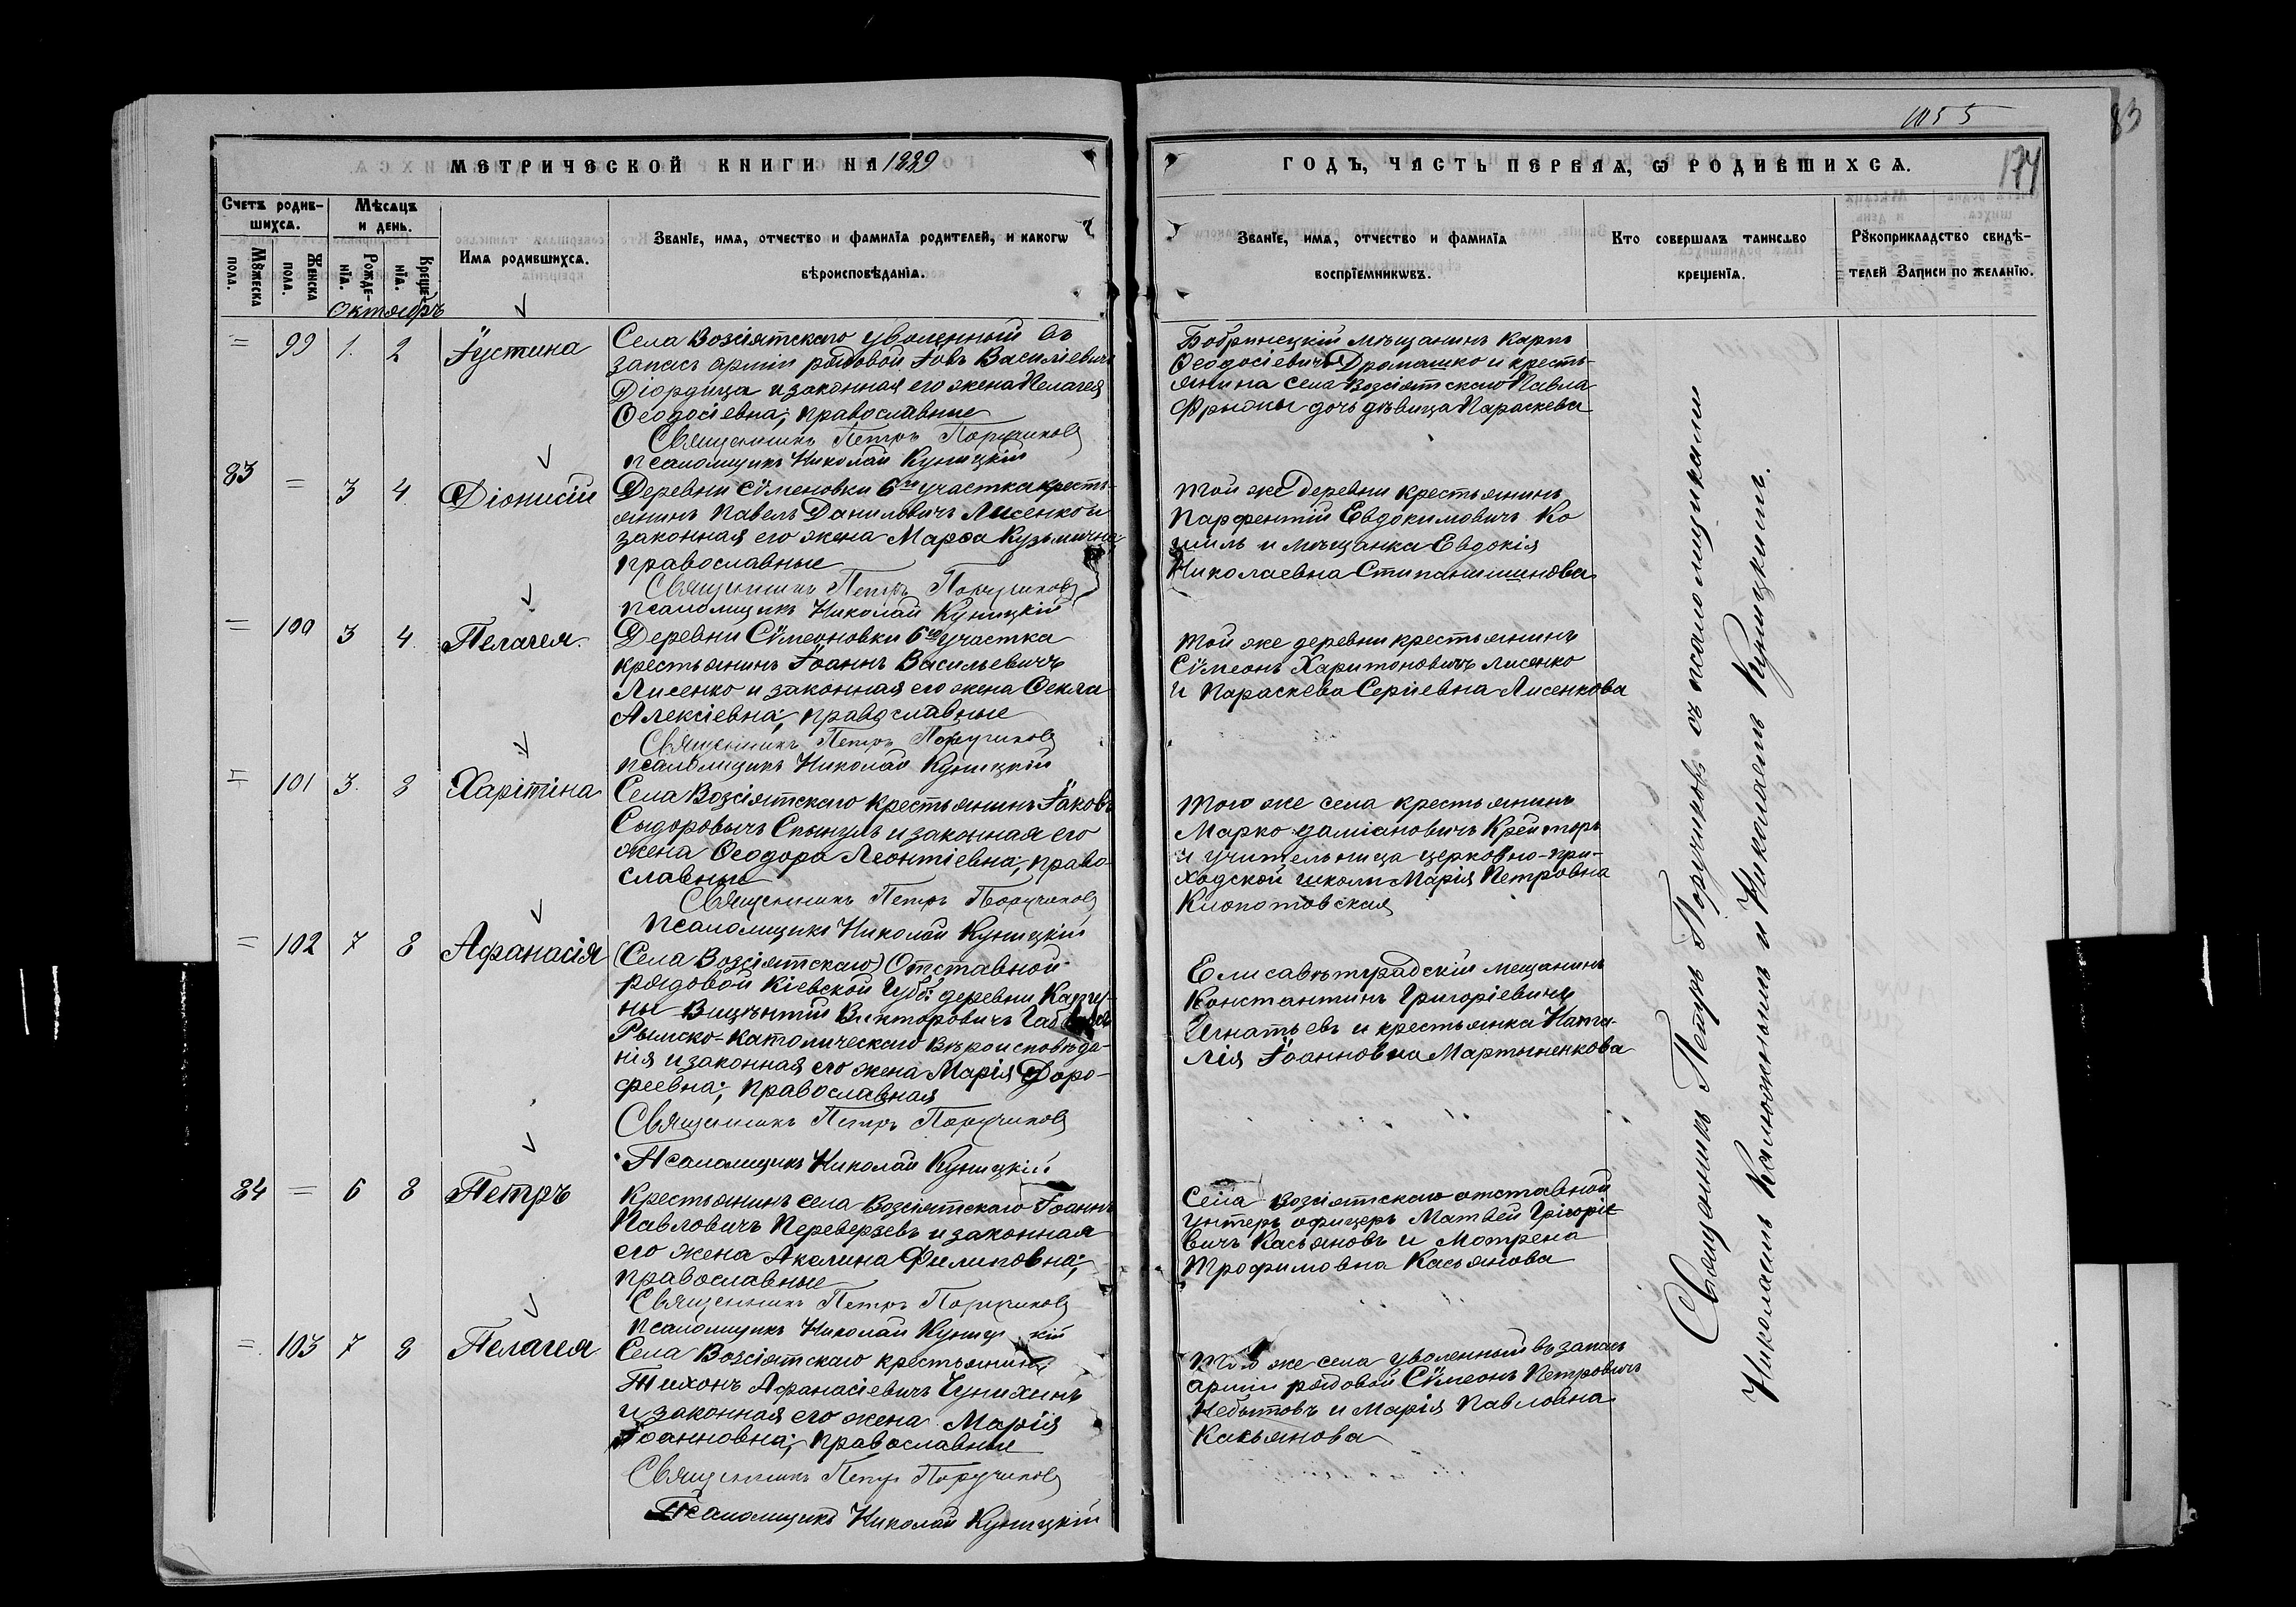 1155
83
МЕТРИЧЕСКОЙ КНИГИ НА 1889
ГОДЪ, ЧАСТЬ ПЕРВАѦ, Ѡ РОДИВШИХСѦ.
174
Счетъ родив-
шихсѧ.
Мѣсѧцъ
и день.
Мꙋжеска
пола.
Женска
пола.
Рожде-
нїѧ.
Креще-
нїѧ.
Имѧ родившихсѧ.
Званїе, имѧ, отчество и фамилїѧ родителей, и какогѡ
вѣроисповѣданїѧ.
Званїе, имѧ, отчество и фамилїѧ
воспрїемникѡвъ.
Кто совершалъ таинство
крещенїѧ.
Рꙋкоприкладство свидѣ-
телей записи по желанїю.
Октябрь
= 99 1. 2 Іустина
Села Возсіятскаго уволенный въ
запасъ арміи рядовой Іовъ Василіевичъ
Діордица и законная его жена Пелагея
Ѳеодосіевна; православные
Священникъ Петръ Поручиковъ
псаломщикъ Николай Куницкій
Бобринецкій мѣщанинъ Карпъ
Ѳеодосіевичъ Дромашко и кресть-
янина села Возсіятскаго Павла
Фрыипы дочь дѣвица Параскева
83 = 3 4 Діонисій
Деревни Сѵменовки 6го участка кресть-
янинъ Павелъ Даниловичъ Лисенко и
законная его жена Марѳа Кузьмична
православные
Священникъ Петръ Поручиковъ
псаломщикъ Николай Куницкій
Той же деревни крестьянинъ
Парфентій Евдокимовичъ Ко
шиль и мѣщанка Евдокія
Николаевна Стипанишинова
= 100 3 4. Пелагея.
Деревни Сѵмеоновки 6го участка
крестьянинъ Іоаннъ Васильевичъ
Лисенко и законная его жена Ѳекла
Алексіевна; православные
Священникъ Петръ Поручиковъ
псаломщикъ Николай Куницкій
Той же деревни крестьянинъ
Сѵмеонъ Харитоновичъ Лисенко
и Параскева Сергіевна Лисенкова
= 101 3. 8 Харітіна
Села Возсіятскаго крестьянинъ Іаковъ
Сыдоровычъ Спынулъ и законная его
жена Ѳеодора Леонтіевна; право
славные
Священникъ Петръ Поручиковъ
Псаломщикъ Николай Куницкій
Того же села крестьянинъ
Марко Даміановичъ Крейторъ
и учительница церковно-при-
ходской школы Марія Петровна
Клопотовская
= 102 7 8 Афанасія
(Села Возсіятскаго) Отставной
рядовой Кіевской Губ: деревни
Викторовичъ
Рымско-Католическаго вѣроисповѣда-
нія и законная его жена Марія Доро-
феевна; православная
Священникъ Петръ Поручиковъ
Псаломщикъ Николай Куницкій
Елисаветградскій мещанинъ
Константинъ Григоріевичъ
Игнатьевъ и крестьянка Ната-
лія Іоанновна Мартыненкова
84 = 6 8 Петръ
Крестьянинъ села Возсіятскаго Іоаннъ
Павловичъ Переверзевъ и законная
его жена Акилина Филиповна;
православные
Священникъ Петръ Поручиковъ
псаломщикъ Николай Куницкій
Села Возсіятскаго отставной
унтеръ офицеръ Матвей Грігоріе
вичъ Касьяновъ и Мотрена
Трофимовна Касьянова
=. 103 7 8 Пелагея
Села Возсіятскаго крестьянинъ
Тихонъ Афанасіевичъ Чунихинъ
и законная его жена Марія
Іоанновна; православные
Священникъ Петръ Поручиковъ
Псаломщикъ Николай Куницкій
Того же села уволенный въ запасъ
арміи рядовой Сѵмеонъ Петровичъ
Небытовъ и Марія Павловна
Касьянова
Священникъ Петръ Поручиковъ съ псаломщиками
Николаемъ Калюжнымъ и Николаемъ Куницкимъ.